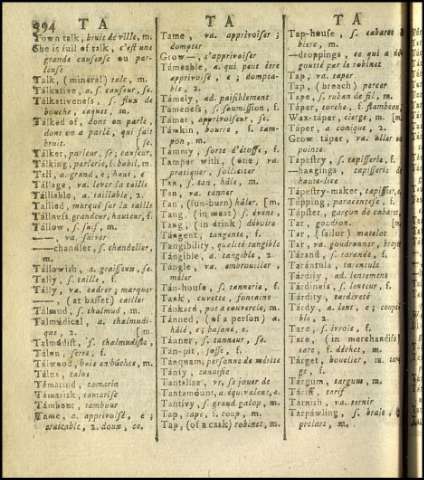 394 T A
Town talk, bruit de ville, m.
She is full of talk, c'est une
grande causeuse ou par-
leuse
Talk, (mineral) talc, m.
Tálkative, a. f. causeur, se.
Tálkativeness, s. flux de
bouche, caquet, m.
Talked of, dont on parle,
dont on a parlé, qui fait
bruit. [se.
Tálker, parleur, se; causeur,
Tálking, parlerie, f. babil, m.
Tall, a. grand, e; haut, e
Tállage, va. lever la taille
Tálliable, a. taillable, 2.
Tallied, marqué sur la taille
Tállness grandeur, hauteur, f.
Tállow, s. suif, m.
——, va. suiver
——-chandler, s. chandelier,
m.
Tállowish, a. graisseux, se.
Tally, s. taille, f.
Tálly, va. cadrer; marquer
——, (at basset) tailler
Tálmud, s. thalmud, m.
Talmúdical, a. thalmudi-
que, 2. [m.
Talmúdist, s. thalmudiste,
Tálon, serre, f.
Tálwood, bois en bûches, m.
Tálus, talus
Támarind, tamarin
Támarisk, tamaris
Támbour, tambour
Tame, a. apprivoisé, e;
traitable, 2. doux, ce.
T A
Tame, va. apprivoiser;
dompter
Grow—, s'apprivoiser
Támeable, a. qui peut être
apprivoisé, e; dompta-
ble, 2.
Támely, ad. paisiblement
Tameness, s. soumission, f.
Támer, apprivoiseur, se.
Támkin, bourre, f. tam-
pon, m.
Támmy, sorte d'étoffe, f.
Tamper with, (one) va.
pratiquer, solliciter
Tan, s. tan, hâle, m.
Tan, va. tanner
Tan, (sun-burn) hâler, [m.
Tang, (in meat) s. évent,
Tang, (in drink) déboire
Tángent, tangente, f.
Tangibility, qualité tangible
Tángible, a. tangible, 2.
Tángle, va. embrouiller,
mêler
Tán-house, s. tannerie, f.
Tank, cuvette, fontaine
Tánkard, pot à couvercle, m.
Tánned, (of a person) a.
hâlé, e; basané, e.
Tánner, s. tanneur, se.
Tán-pit, fosse, f.
Tánquam, personne de mérite
Tánsy, tanaisie
Tantalize, vr. se jouer de
Tantamount, a. équivalent, e.
Tantívy, s. grand galop, m.
Tap, tape, f. coup, m.
Tap, (of a cask) robinet, m.
T A
Tap-house, s. cabaret à
biere, m.
—-droppings, ce qui a dé-
goutté par le robinet
Tap, va. taper
Tap, (breach) percer
Tape, s. ruban de fil, m.
Táper, torche, f. flambeau,
Wax-táper, cierge, m. [m.
Táper, a. conique, 2.
Grow táper, va. aller en
pointe
Tápistry, s. tapisserie, f.
—-hangings, tapisserie de
haute-lisse
Tápistry-maker, tapissier, e
Tápping, paracentese, f.
Tápster, garçon de cabaret,
Tar, goudron. [m.
Tar, (sailor) matelot
Tar, va. goudronner, brayer
Tárand, s. tarande, f.
Tarántula, tarentule
Tárdily, ad. lentement
Tárdiness, s. lenteur, f.
Tárdity, tardiveté
Tárdy, a. lent, e; coupa-
ble, 2.
Tare, s. ivroie, f.
Tare, (in merchandise)
tare, f. déchet, m.
Tárget, bouclier, m. tar-
ge, f.
Tárgum, targum, m.
Táriff, tarif
Tárnish, va. ternir
Tarpáwling, s. braie, f.
prelart, m.